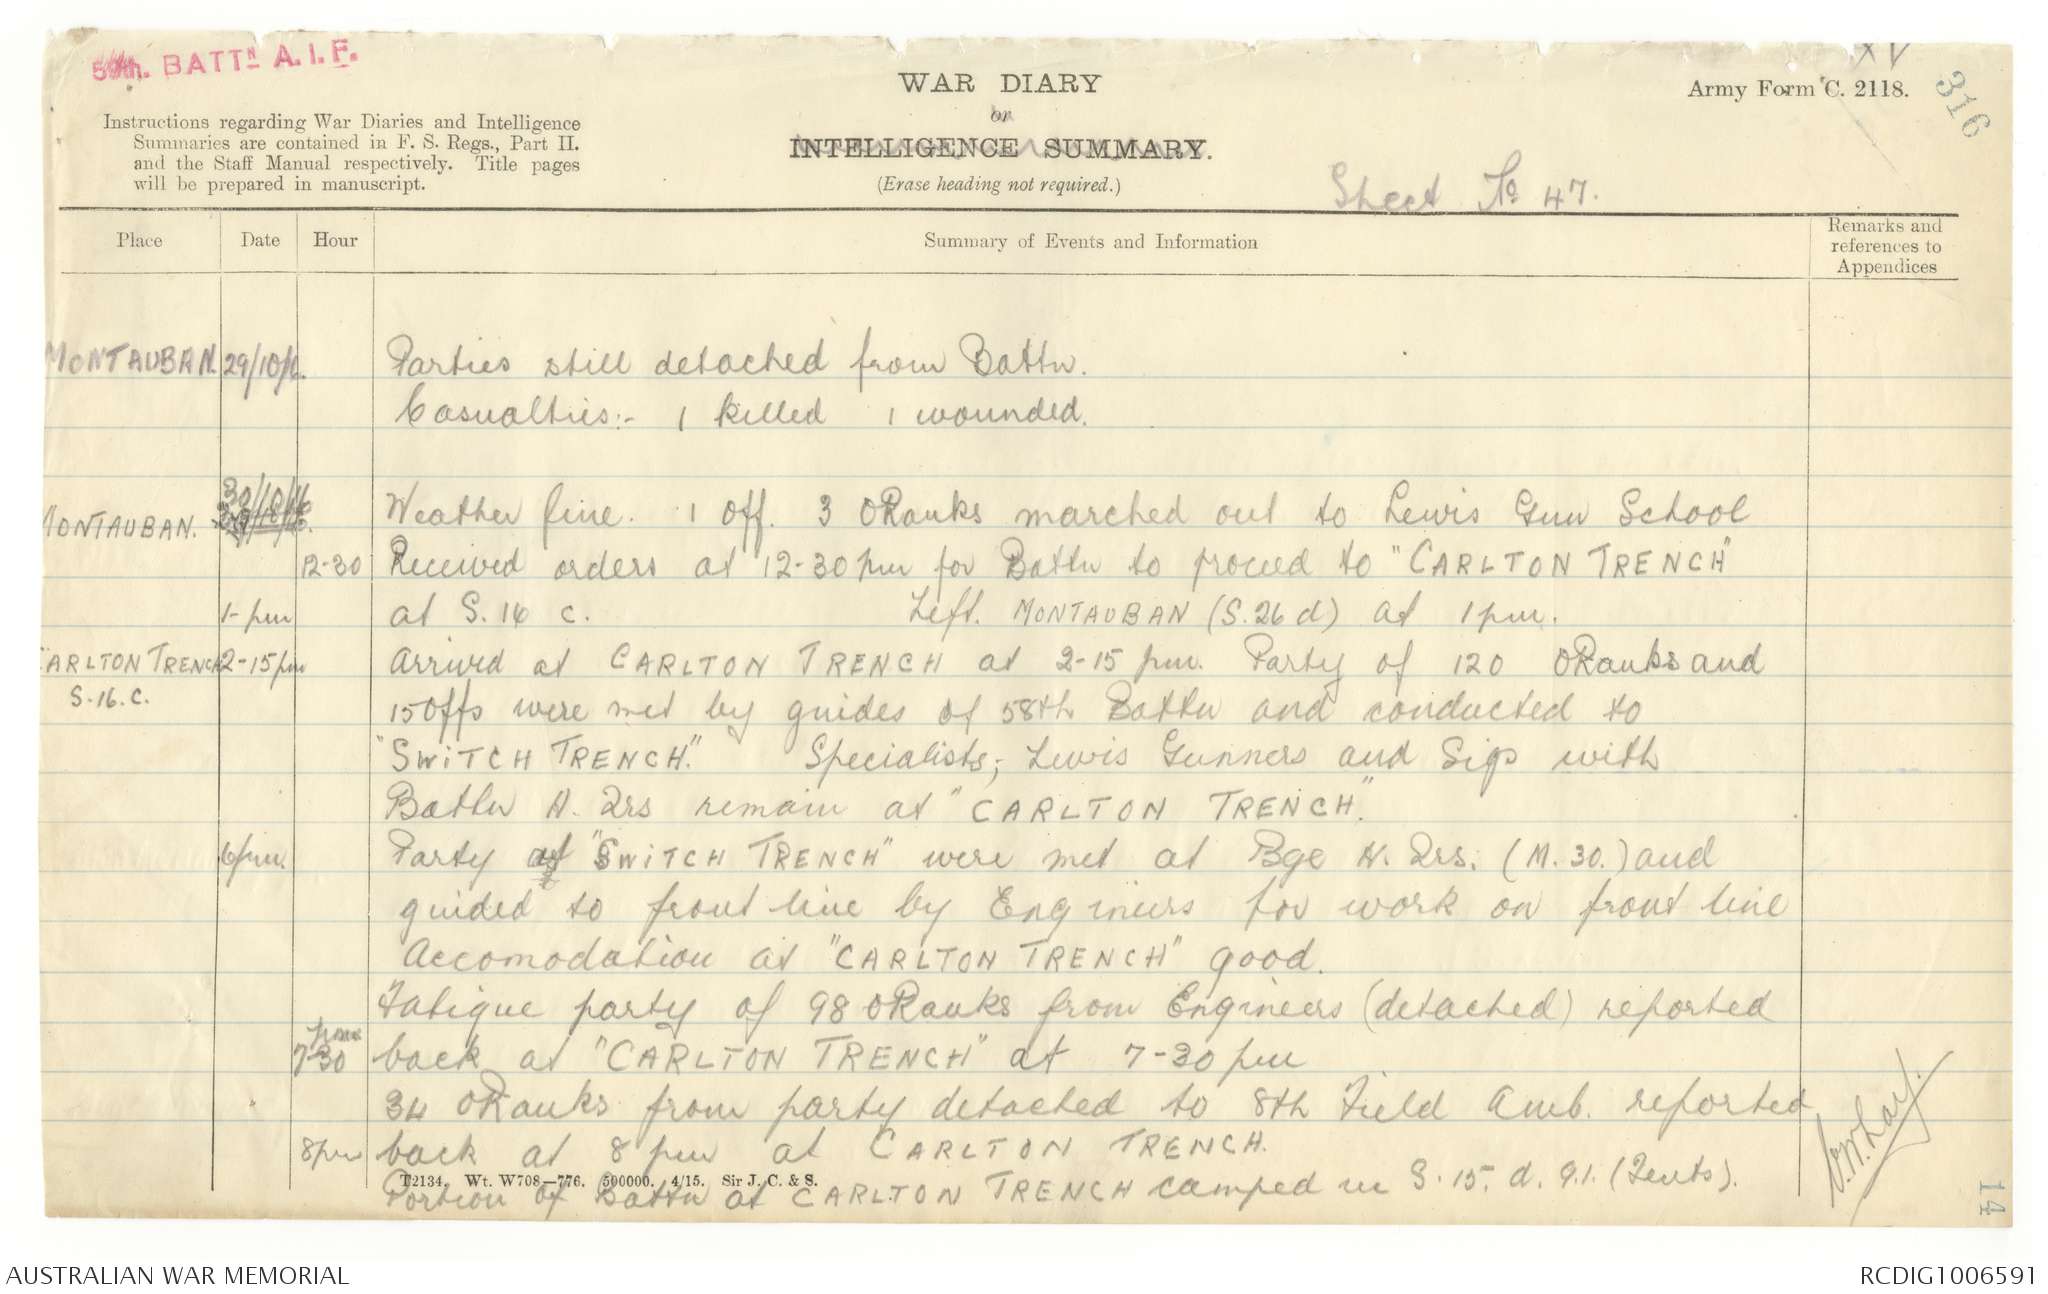 BATTN A.I.F.
WAR DIARY
or
INTELLIGENCE SUMMARY.
(Erase heading not required.)
Army Form C. 2118.
316
Instructions regarding War Diaries and Intelligence
Summaries are contained in F. S. Regs., Part II.
and the Staff Manual respectively. Title pages
will be prepared in manuscript.
Sheet No 47.
Place Date Hour Summary of Events and Information Remarks and
references to
Appendices
MONTAUBAN. 29/10/16. Parties still detached from Battn.
Casualties:- 1 killed 1 wounded.
MONTAUBAN. 30/10/16 Weather fine. 1 Off. 3 ORanks marched out to Lewis Gun School
12-30 Received orders at 12-30 pm for Battn to proceed to "CARLTON TRENCH"
1-pm at S. 16 c. Left. MONTAUBAN (S.26 d) at 1 pm.
CARLTON TRENCH 2-15 pm Arrived at CARLTON TRENCH at 2-15 pm. Party of 120 ORanks and
S.16.C. 15 Offs were met by guides of 58th Battn and conducted to
"SWITCH TRENCH." Specialists; Lewis Gunners and Sigs with
Battn H. Qrs remain at "CARLTON TRENCH".
6 pm. Party at "SWITCH TRENCH" were met at Bge H. Qrs. (M. 30.) and
guided to front line by Engineers for work on front line
Accomodation at "CARLTON TRENCH" good.
Fatigue party of 98 ORanks from Engineers (detached) reported
7-30 pm back at "CARLTON TRENCH" at 7-30 pm
34 ORanks from party detached to 8th Field Amb. reported
8 pm back at 8 pm at CARLTON TRENCH.
T2134. Wt. W708—776. 500000. 4/15. Sir J. C. & S.
Portion of Battn at CARLTON TRENCH camped in S. 15. d. 9.1. (Tents).
14
AUSTRALIAN WAR MEMORIAL
RCDIG1006591